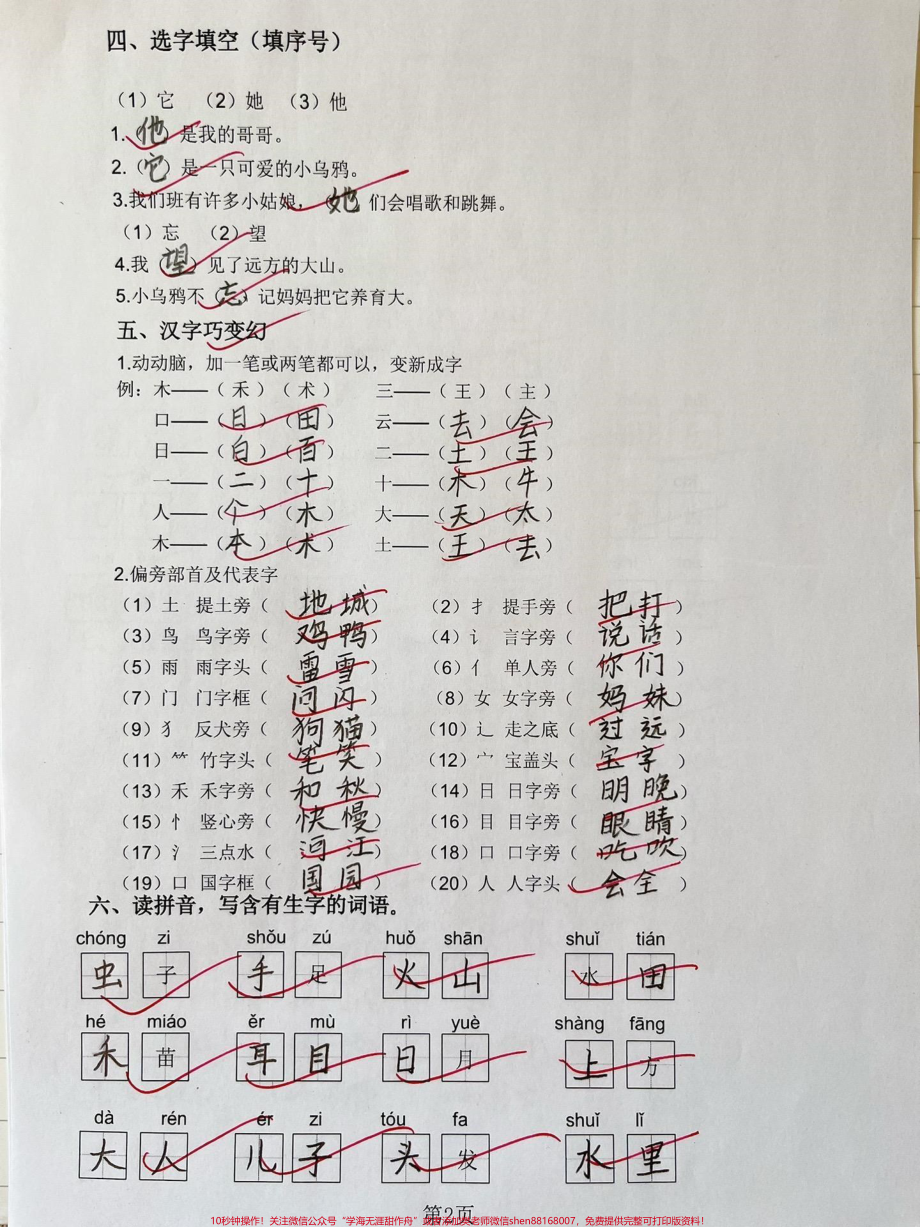 四、选字填空（填序号）
（1）它 （2）她 （3）他
1.（他）是我的哥哥。
2.（它）是一只可爱的小乌鸦。
3.我们班有许多小姑娘，（她）们会唱歌和跳舞。
（1）忘 （2）望
4.我（望）见了远方的大山。
5.小乌鸦不（忘）记妈妈把它养育大。
五、汉字巧变幻
1.动动脑，加一笔或两笔都可以，变新成字
例：木——（禾）（术） 三——（王）（主）
口——（日）（田） 云——（去）（会）
日——（白）（百） 二——（土）（王）
一——（二）（十） 十——（木）（牛）
人——（个）（木） 大——（天）（太）
木——（本）（术） 土——（王）（去）
2.偏旁部首及代表字
（1）土 提土旁（ 地 城） （2）扌 提手旁（ 把 打 ）
（3）鸟 鸟字旁（ 鸡 鸭） （4）讠 言字旁（ 说 话 ）
（5）雨 雨字头（ 雷 雪 ） （6）亻 单人旁（ 你 们 ）
（7）门 门字框（ 问 闪 ） （8）女 女字旁（ 妈 妹）
（9）犭 反犬旁（ 狗 猫 ） （10）辶 走之底（ 过 远 ）
（11）⺮ 竹字头（ 笔 笑 ） （12）宀 宝盖头（ 宝 字 ）
（13）禾 禾字旁（ 和 秋 ） （14）日 日字旁（ 明 晚）
（15）忄 竖心旁（ 快 慢 ） （16）目 目字旁（ 眼 睛 ）
（17）氵 三点水（ 河 江 ） （18）口 口字旁（ 吃 吹 ）
（19）口 国字框（ 国 园 ） （20）人 人字头（ 会 全 ）
六、读拼音，写含有生字的词语。
chóng zi shǒu zú huǒ shān shuǐ tián
虫子 手足 火山 水田
hé miáo ěr mù rì yuè shàng fāng
禾苗 耳目 日月 上方
dà rén ér zi tóu fa shuǐ lǐ
大人 儿子 头发 水里
第2页
10秒钟操作！关注微信公众号“学海无涯甜作舟”或者添加奥老师微信shen88168007，免费提供完整可打印版资料！